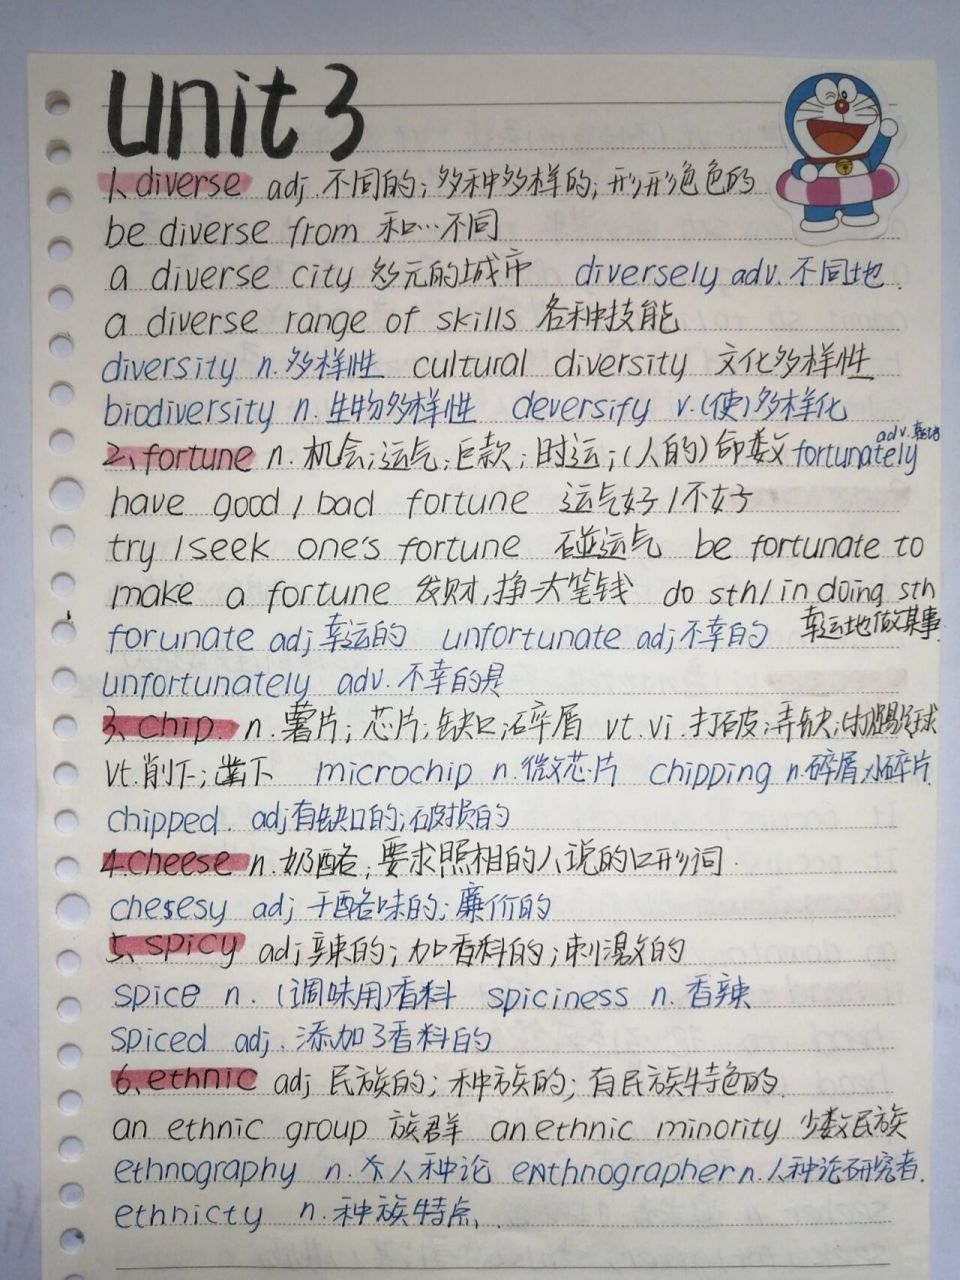 Unit 3
1、diverse adj.不同的;多种多样的;形形色色的
be diverse from 和…不同
a diverse city 多元的城市 diversely adv.不同地.
a diverse range of skills 各种技能
diversity n.多样性 cultural diversity 文化多样性
biodiversity n.生物多样性 deversify v.(使)多样化
2、fortune n.机会;运气;巨款;时运;(人的)命数 fortunately adv.
have good/bad fortune 运气好/不好
try/seek one's fortune 碰运气 be fortunate to
make a fortune 发财,挣大笔钱 do sth/in doing sth
幸运地做某事.
forunate adj幸运的 unfortunate adj不幸的
unfortunately adv.不幸的是
3、chip n.薯片;芯片;缺口;碎屑 vt.vi.打破;弄缺;
vt.削下;凿下 microchip n.微芯片 chipping n.碎屑,小碎片.
chipped. adj有缺口的;破损的
4.cheese n.奶酪;要求照相的人说的口形词.
chesesy adj 干酪味的;廉价的
5、spicy adj辣的;加香料的;刺激的
spice n.(调味用)香料 spiciness n.香辣
spiced adj.添加了香料的
6、ethnic adj 民族的;种族的;有民族特色的.
an ethnic group 族群 an ethnic minority 少数民族
ethnography n.人种论 enthnographer n.人种论研究者.
ethnicty n.种族特点.